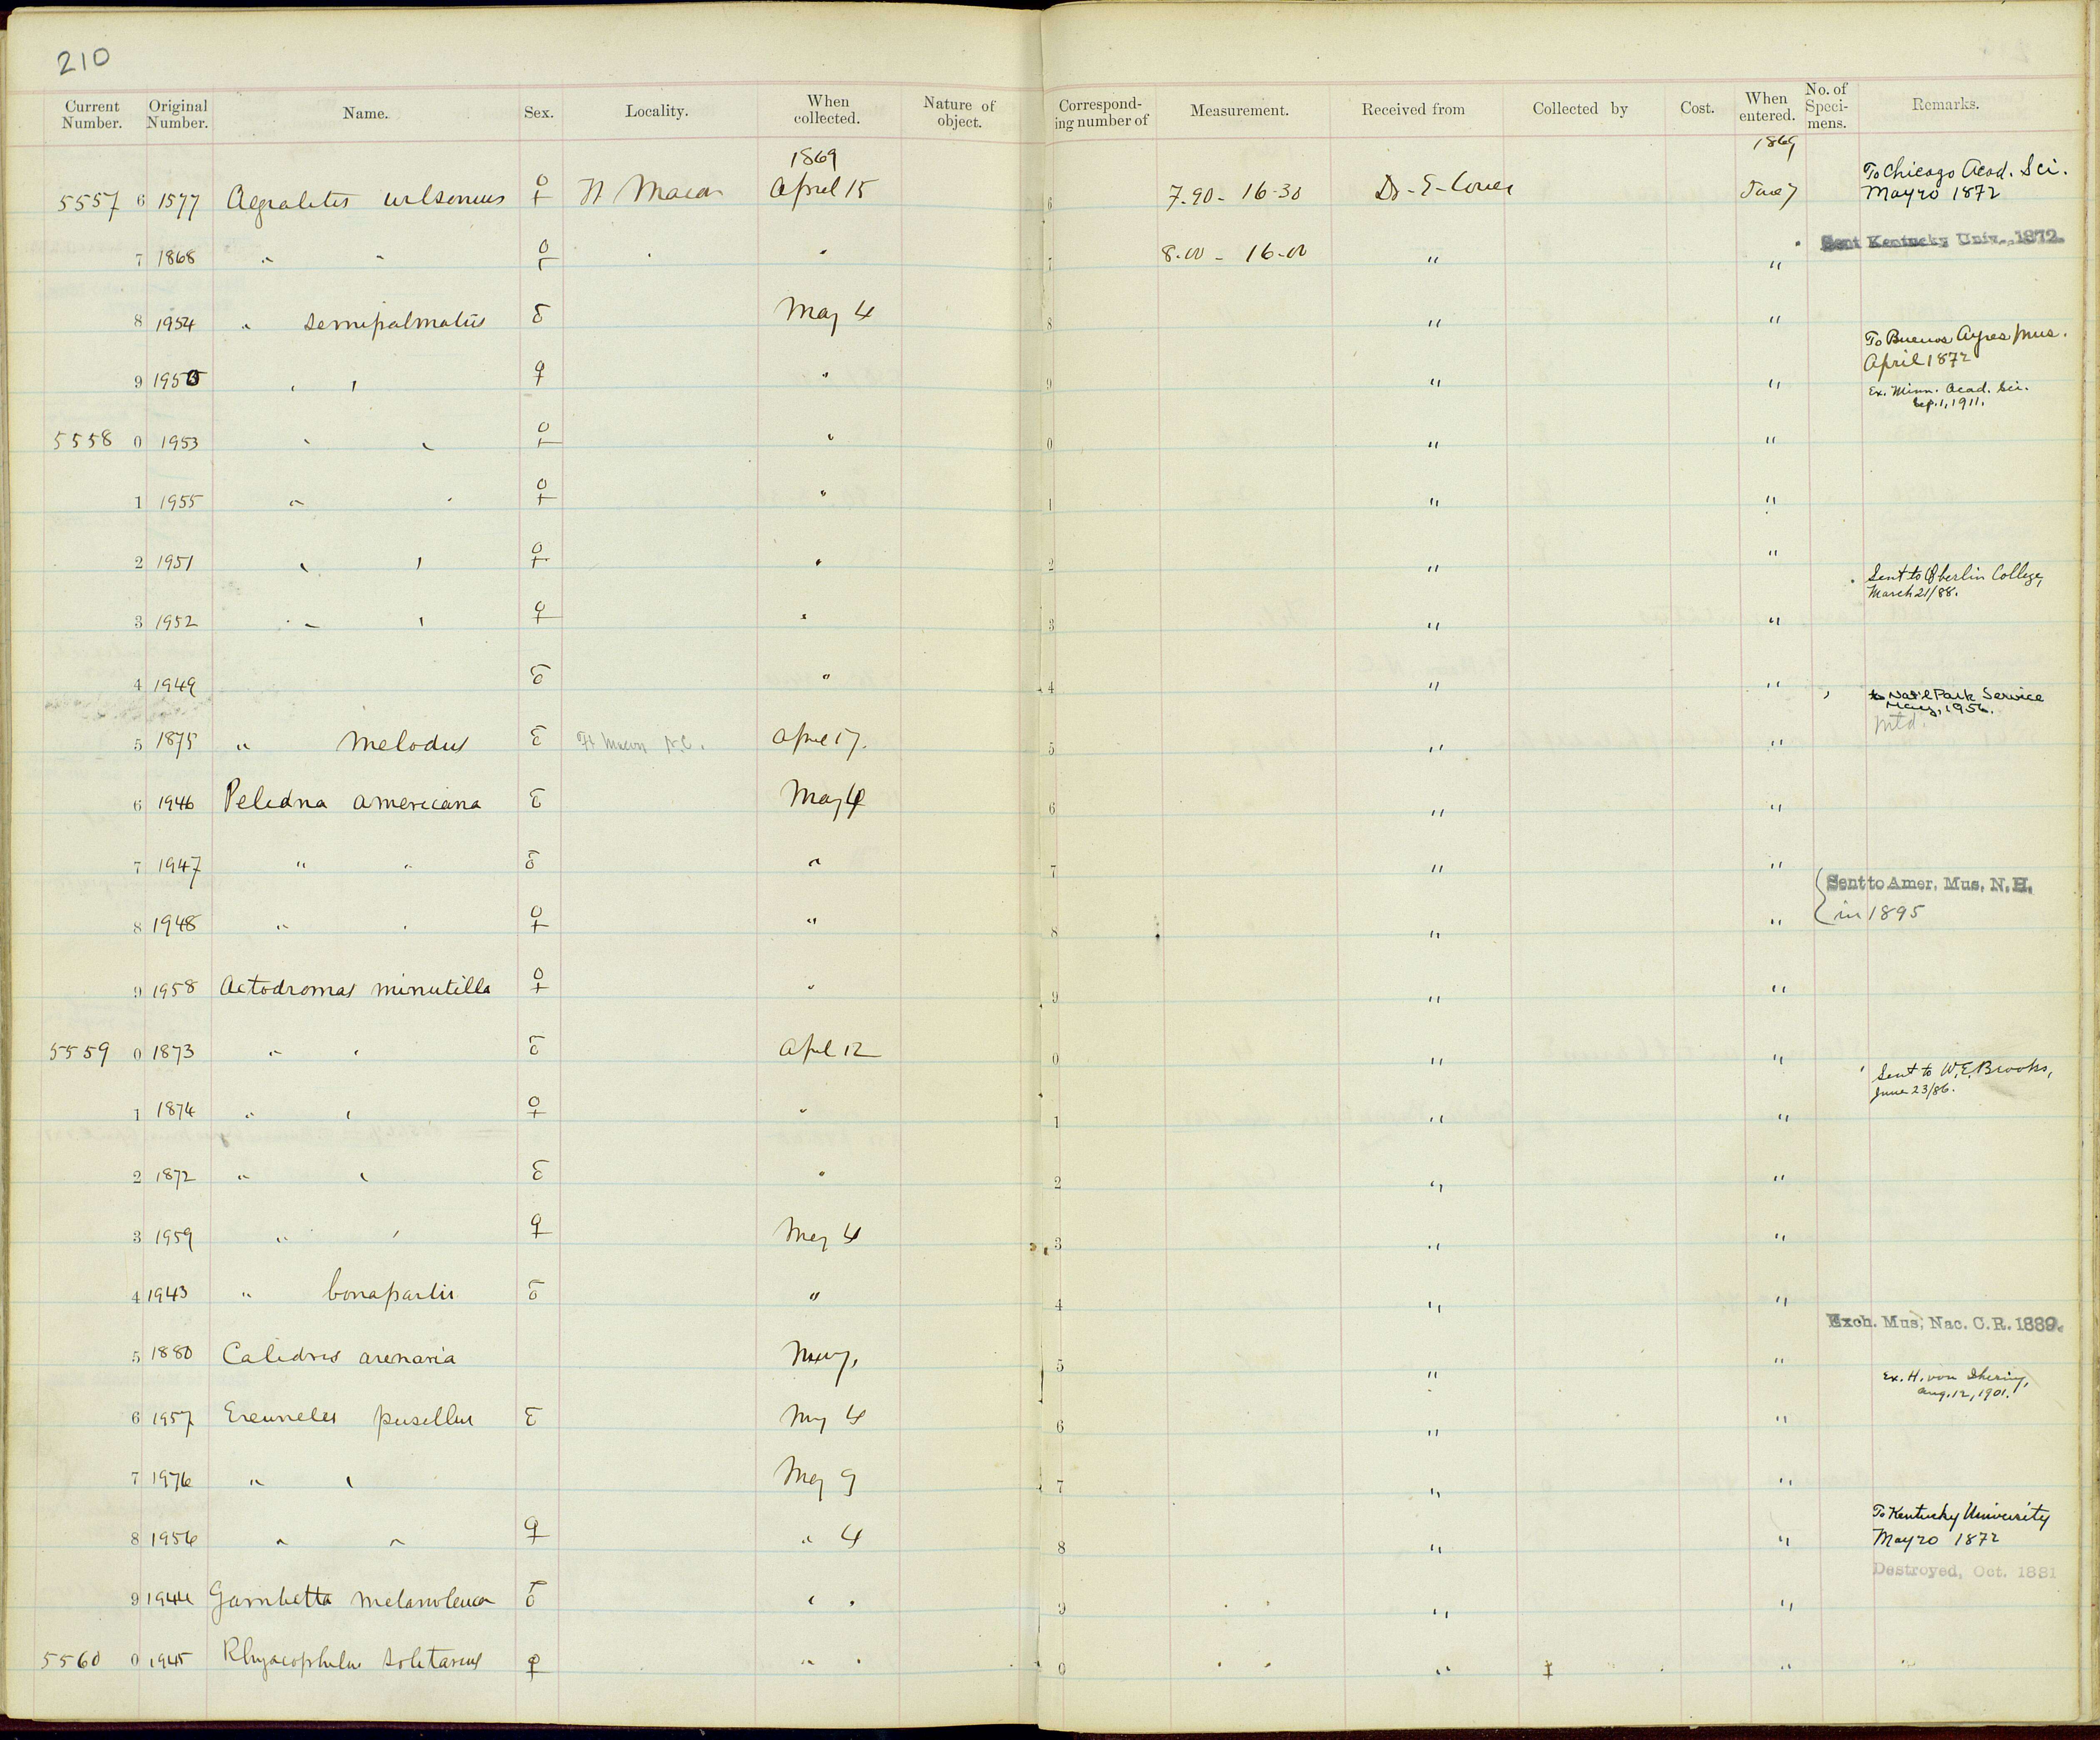 210
Current Number. Original Number. Name. Sex. Locality. When collected. Nature of object. Correspond- ing number of Measurement. Received from Collected by Cost. When entered. No. of Speci- mens. Remarks.
1869 1869
5557 6 1577 Aegialitis wilsonius ♀ Ft Macon April 15 6 7.90 - 16-30 Dr - E - Coues June 7 To Chicago Acad. Sci. May 20 1872
7 1868 " " ♀ " " 7 8.00 - 16-00 " " Sent Kentucky Univ., 1872.
8 1954 " semipalmatus ♂ May 4 8 " "
9 1950 " " ♀ " 9 " " To Buenos Ayres Mus. April 1872
Ex. Minn. Acad. Sci. Sep. 1, 1911.
5558 0 1953 " " ♀ " 0 " "
1 1955 " " ♀ " 1 " "
2 1951 " " ♀ " 2 " "
3 1952 " " ♀ " 3 " " Sent to Oberlin College, March 21/88.
4 1949 ♂ " 4 " "
5 1875 " melodus ♂ Ft Macon N.C. April 17. 5 " " to Nat'l Park Service May, 1956.
mtd.
6 1946 Pelidna americana ♂ May 4 6 " "
7 1947 " " ♂ " 7 " " Sent to Amer. Mus. N.H.
8 1948 " " ♀ " 8 " " in 1895
9 1958 Actodromas minutilla ♀ " 9 " "
5559 0 1873 " " ♂ April 12 0 " "
1 1874 " " ♀ " 1 " " Sent to W.E. Brooks, June 23/86.
2 1872 " " ♂ " 2 " "
3 1959 " " ♀ May 4 3 " "
4 1943 " bonapartii ♂ " 4 " "
5 1880 Calidris arenaria May, 5 " " Exch. Mus. Nac. C.R. 1889.
6 1957 Ereunetes pusillus ♂ May 4 6 " " Ex. H. von Ihering, Aug. 12, 1901.
7 1976 " " May 9 7 " "
8 1956 " " ♀ " 4 8 " " To Kentucky University May 20 1872
9 1944 Gambetta melanoleuca ♂ " " 9 " " Destroyed, Oct. 1881
5560 0 1945 Rhyacophilus solitarius ♀ " " 0 " "